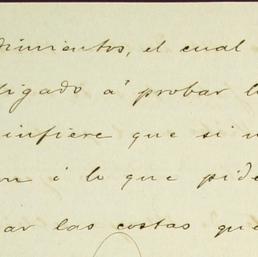 dimientos, el cual
ligado á probar l
infiere que si n
on ó lo que pide
ar las costas que